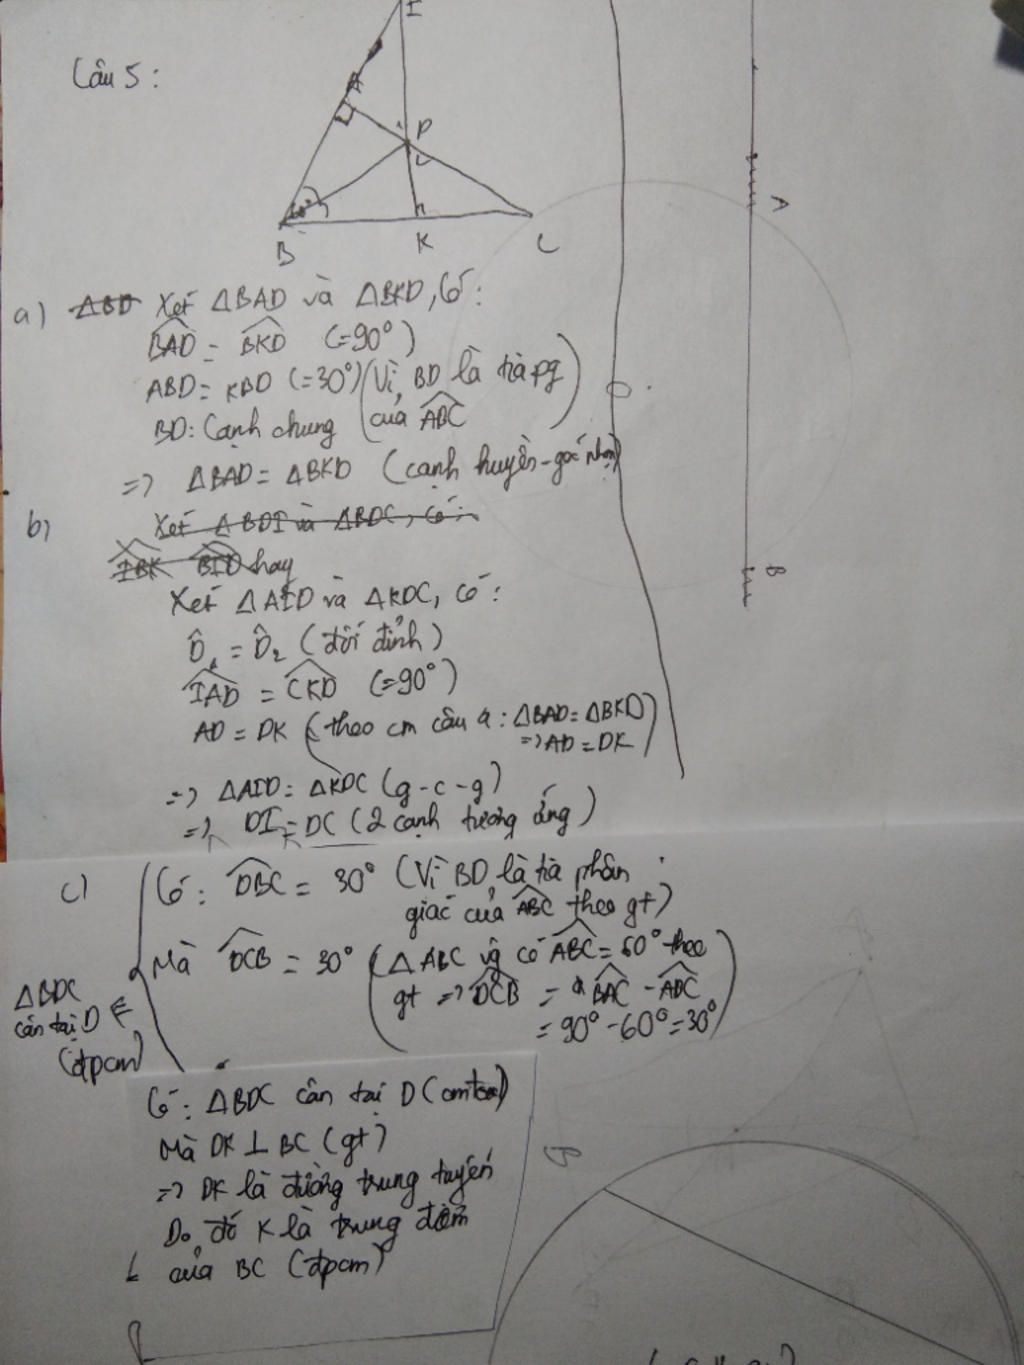 Câu 5:
I
A
D
60°
B
K
C
a) ΔBD Xét ΔBAD và ΔBKD, có:
BAD = BKD (=90°)
ABD = KBD (=30°) (Vì BD là tia pg
của ABC)
BD: Cạnh chung
=> ΔBAD = ΔBKD (cạnh huyền - góc nhọn)
b) Xét ΔBDI và ΔBDC, có:
IBK BID hay
Xét ΔAID và ΔKDC, có:
D̂1 = D̂2 (đối đỉnh)
IAD = CKD (=90°)
AD = DK (theo cm câu a: ΔBAD = ΔBKD
=> AD = DK)
=> ΔAID = ΔKDC (g-c-g)
=> DI = DC (2 cạnh tương ứng)
c) Có: DBC = 30° (Vì BD là tia phân
giác của ABC theo gt)
Mà DCB = 30° (ΔABC vg có ABC = 60° theo
gt => DCB = BAC - ABC
= 90° - 60° = 30°)
ΔBDC
cân tại D
(đpcm)
Có: ΔBDC cân tại D (cmtrên)
Mà DK ⊥ BC (gt)
=> DK là đường trung tuyến
Do đó K là trung điểm
của BC (đpcm)
A
O
B
B